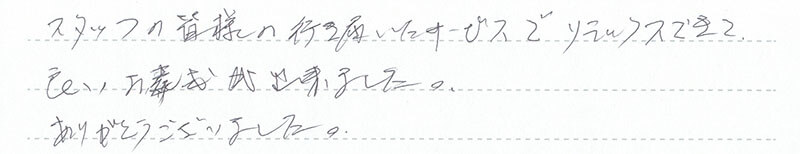 スタッフの皆様の行き届いたサービスでリラックスできて、
良いお葬式が出来ました。
ありがとうございました。